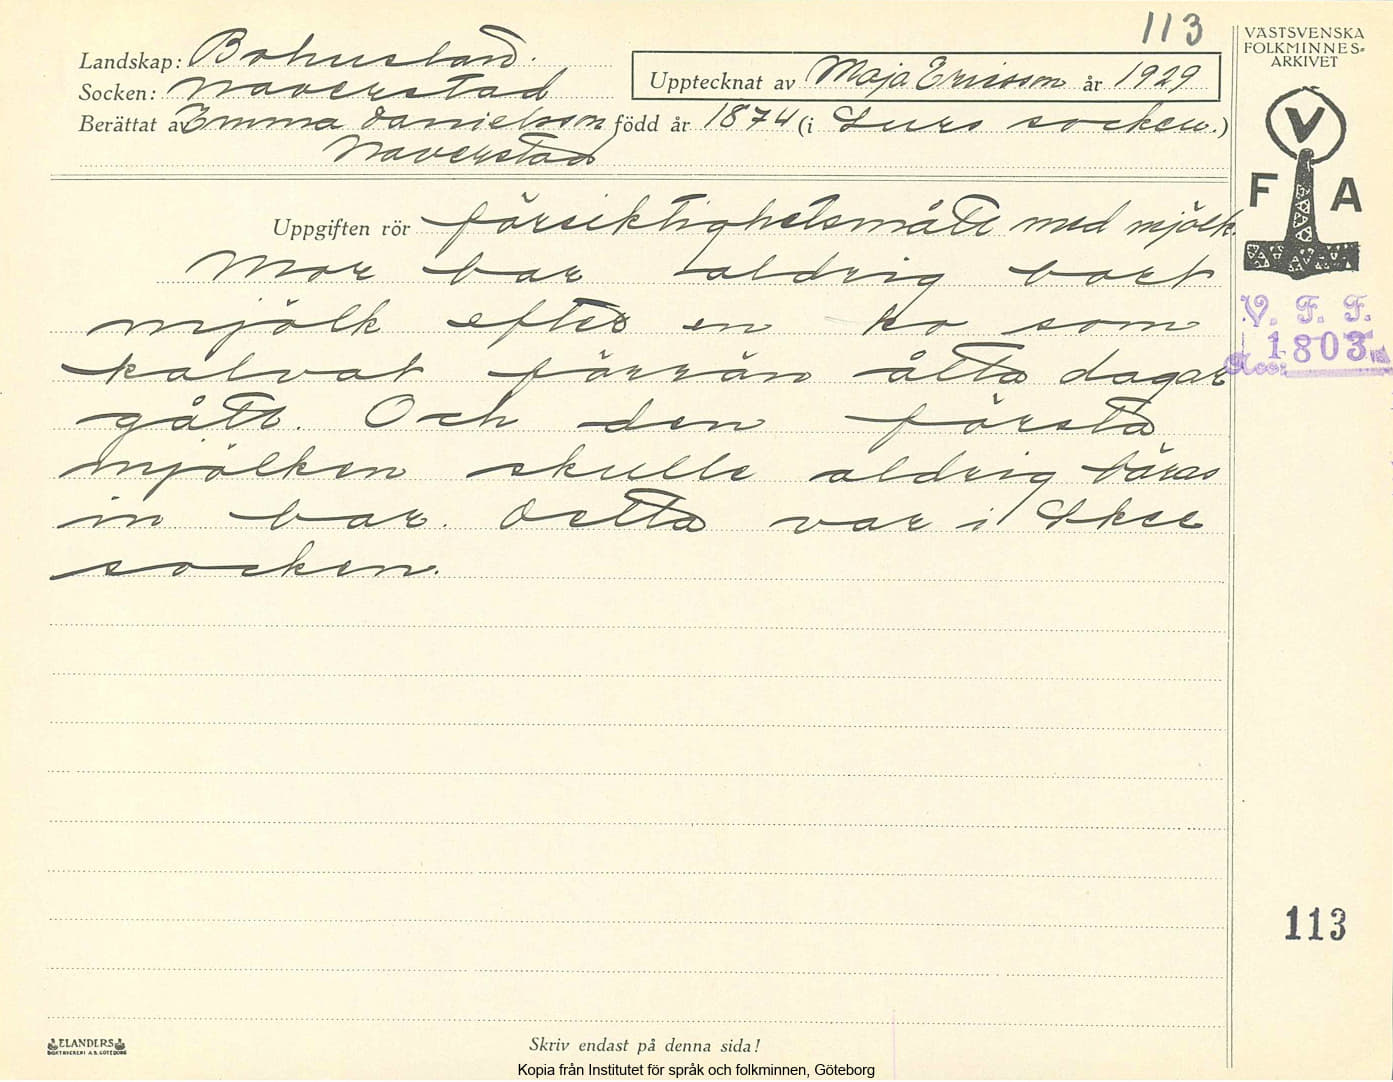 113
VÄSTSVENSKA
FOLKMINNES-
ARKIVET
Landskap: Bohuslän.
Socken: Naverstad
Upptecknat av Maja Ericsson år 1929
Berättat av Emma Danielsson född år 1874 (i Lurs socken.)
Naverstad
V
F A
Uppgiften rör försiktighetsmått med mjölk.
Mor bar aldrig bort
mjölk efter en ko som
kalvat förrän åtta dagar
gått. Och den första
mjölken skulle aldrig bäras
in bar. Detta var i Skee
socken.
V. F. F.
1803
113
ELANDERS
BOKTRYCKERI A.B. GÖTEBORG
Skriv endast på denna sida!
Kopia från Institutet för språk och folkminnen, Göteborg